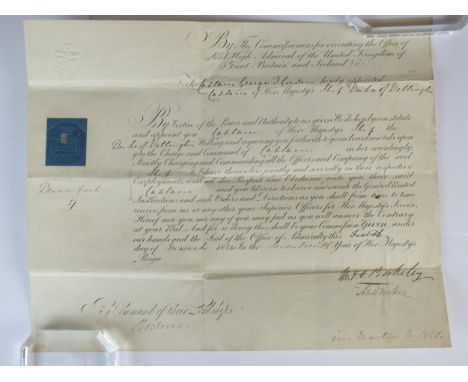 By The Commissioners for executing the Office of
Lord High Admiral of the United Kingdom of
Great Britain and Ireland &c.
To Captain George T Gordon hereby appointed
Captain of Her Majesty's Ship Duke of Wellington
By Virtue of the Power and Authority to us given We do hereby constitute
and appoint you Captain of Her Majesty's Ship the
Duke of Wellington Willing and requiring you forthwith to go on board and take upon
you the Charge and Command of Captain in her accordingly.
Strictly Charging and Commanding all the Officers and Company of the said
Ship to behave themselves jointly and severally in their respective
Employments with all due Respect and Obedience unto you their said
Captain and you likewise to observe and execute the General Printed
Instructions and such Orders and Directions as you shall from time to time
receive from us or any other your Superior Officers for Her Majesty's Service.
Hereof nor you nor any of you may fail as you will answer the Contrary
at your Peril. And for so doing this shall be your Commission Given under
our hands and the Seal of the Office of Admiralty this
day of March 185 in the Year of Her Majesty's
Reign
Devonport
By Command of their Lordships
Berkeley